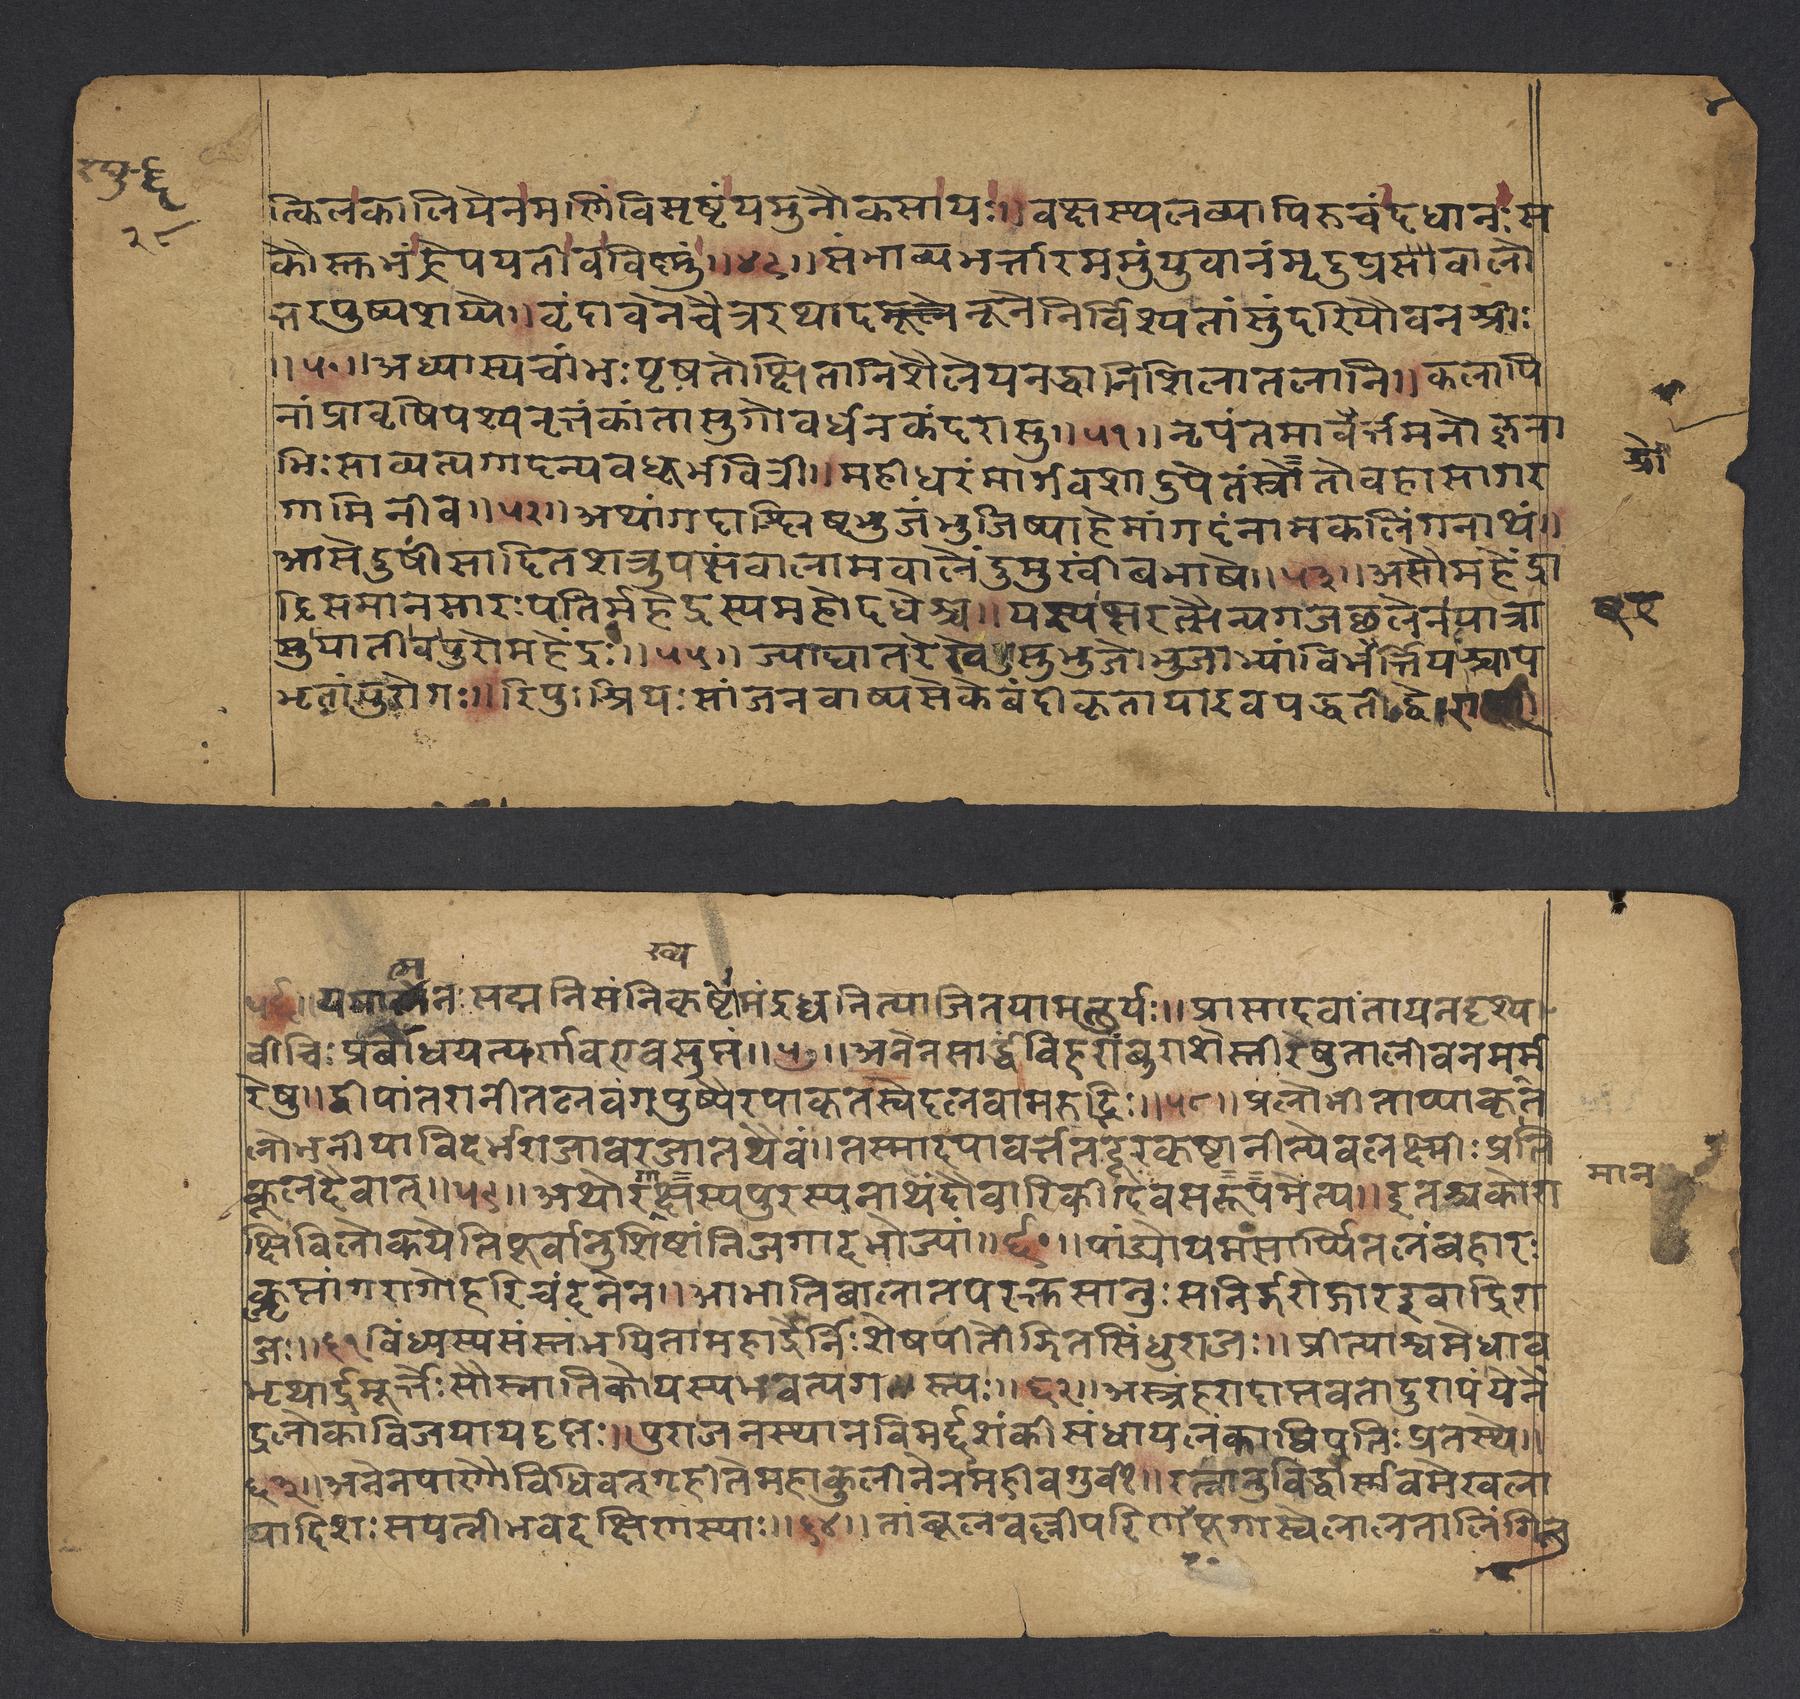 रघु-६
२८
त्किलकालियेनमणिंविसृष्टंयमुनौकसायः॥वक्षस्थलव्यापिरुचंदधानःस
कौस्तुभंह्रेपयतीवविष्णुं॥४९॥संभाव्यभर्त्तारममुंयुवानंमृदुप्रसौवालो
त्तरपुष्पशय्ये॥वृंदावनेचैत्ररथादनूनेनिर्विश्यतांसुंदरियौवनश्रीः
॥५०॥अध्यास्यचांभःपृषतोक्षितानिशैलेयनद्धानिशिलातलानि॥कलापि
नांप्रावृषिपश्यनृत्तंकांतासुगोवर्धनकंदरासु॥५१॥नृपंतमावर्त्तमनोज्ञना
भिःसाव्यत्यगादन्यवधूर्भवित्री॥महीधरंमार्गवशादुपेतंस्रोतोवहासागर
गामिनीव॥५२॥अथांगदाश्लिष्टभुजंभुजिष्याहेमांगदंनामकलिंगनाथं॥
आसेदुषींसादितशत्रुपक्षंबालामबालेंदुमुखींबभाषे॥५३॥असौमहेंद्रा
द्रिसमानसारःपतिर्महेंद्रस्यमहोदधेश्च॥यस्यक्षरत्सैन्यगजछलेनयात्रा
सुयातीवपुरोमहेंद्रः॥५५॥ज्याघातरेखेसुभुजोभुजाभ्यांबिभर्त्तियश्चाप
भृतांपुरोगः॥रिपुश्रियःसांजनबाष्पसेकेबंदीकृतायाइवपद्धतीद्वे॥
श्रो
ख्य
त्म
५६॥यमात्मनःसद्मनिसंनिकृष्टोमंद्रध्वनित्याजितयामतूर्यः॥प्रासादवातायनदृश्य
वीचिःप्रबोधयत्यर्णवएवसुप्तं॥५७॥अनेनसार्द्धंविहरांबुराशेस्तीरेषुतालीवनमर्म
रेषु॥द्वीपांतरानीतलवंगपुष्पैरपाकृतस्वेदलवामरुद्भिः॥५८॥प्रलोभीताप्याकृति
लोभनीयाविदर्भराजावरजातयैवं॥तस्मादपावर्त्ततदूरकृष्टानीत्येवलक्ष्मीःप्रति
कूलदैवात्॥५९॥अथोरगाख्यस्यपुरस्यनाथंदौवारिकीदेवसरूपमेत्य॥इतश्चकोरा
मान
क्षिविलोकयेतिपूर्वानुशिष्टांनिजगादभोज्यां॥६०॥पांड्योयमंसार्पितलंबहारः
कॢप्तांगरागोहरिचंदनेन॥आभातिबालातपरक्तसानुःसनिर्झरोद्गारइवाद्रिरा
जः॥६१विंध्यस्यसंस्तंभयितामहाद्रेर्निःशेषपीतोज्झितसिंधुराजः॥प्रीत्याश्वमेधाव
भृथार्द्रमूर्त्तेःसौस्नातिकोयस्यभवत्यगस्त्यः॥६२॥अस्त्रंहरादाप्तवतादुरापंयेनें
द्रलोकविजयायदृप्तः॥पुराजनस्थानविमर्द्दशंकीसंधायलंकाधिपतिःप्रतस्थे॥
६३॥अनेनपाणौविधिवत्गृहीतेमहाकुलीनेनमहीवगुर्वी॥रत्नानुविद्धार्णवमेखला
यादिशःसपत्नीभवदक्षिणस्याः॥६४॥तांबूलवल्लीपरिणद्धपूगास्वेलालतालिंगित